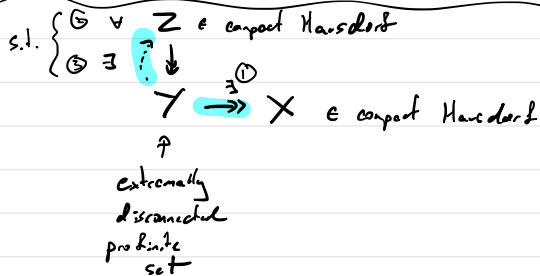 ② ∀ Z ∈ compact Hausdorf
s.t. { ③ ∃
∃ ①
Y ↠ X ∈ compact Hausdorf
↑
extremally
disconnected
profinite
set